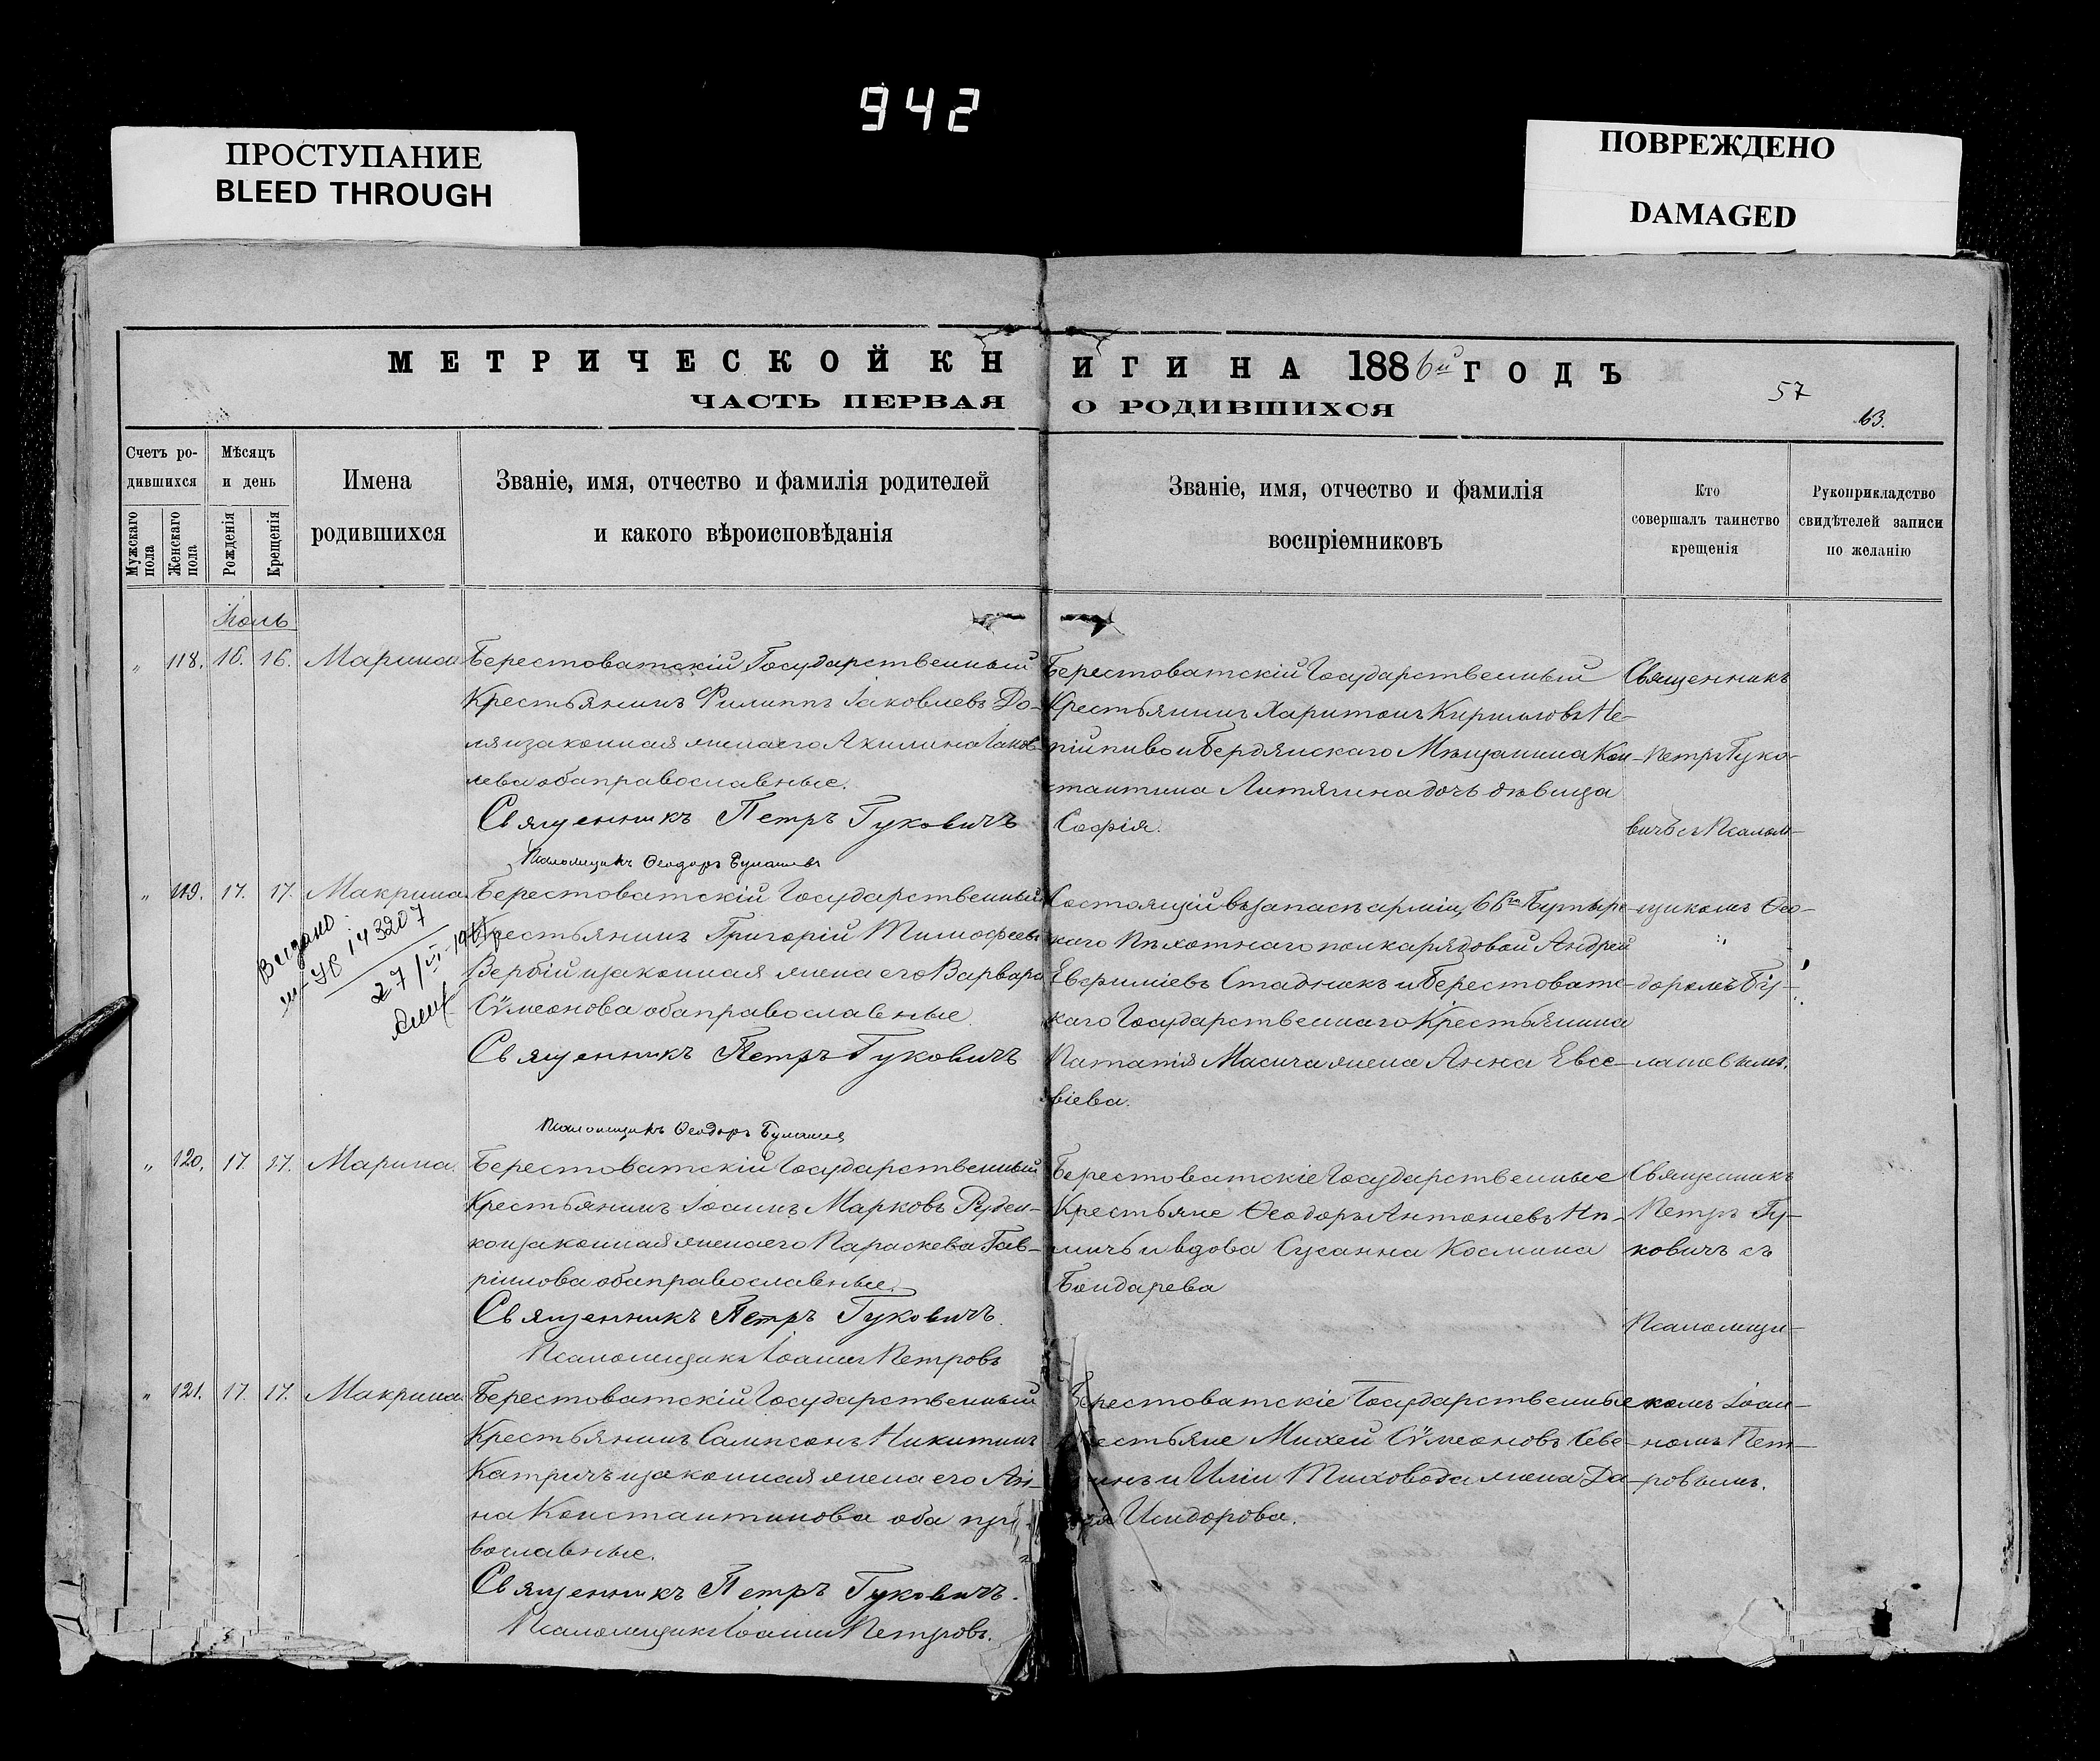 942
ПРОСТУПАНИЕ
BLEED THROUGH
ПОВРЕЖДЕНО
DAMAGED
МЕТРИЧЕСКОЙ КНИГИ НА 1886й ГОДЪ
ЧАСТЬ ПЕРВАЯ О РОДИВШИХСЯ
57
63.
Счетъ ро-
дившихся
Мужскаго пола
Женскаго пола
Мѣсяцъ
и день
Рожденія
Крещенія
Имена
родившихся
Званіе, имя, отчество и фамилія родителей
и какого вѣроисповѣданія
Званіе, имя, отчество и фамилія
воспріемниковъ
Кто
совершалъ таинство
крещенія
Рукоприкладство
свидѣтелей записи
по желанію
Іюль
" 118. 16. 16. Марина
Берестоватскій Государственный
Крестьянинъ Филиппъ Іаковлевъ До-
ля и законная жена его Акилина Іаков-
лева оба православные.
Священникъ Петръ Гуковичъ
Псаломщикъ Ѳеодоръ
Берестоватскій Государственный
Крестьянинъ Харитонъ Кирилловъ Не-
пійпиво и Бердянскаго Мѣщанина Кон-
стантина дочь дѣвица
Софія.
Священникъ
Петръ Гуко-
вичъ съ Псалом-
" 119. 17. 17. Макрина
Выдано
143207
27/VI-19
Берестоватскій Государственный
Крестьянинъ Григорій Тимофеевъ
Вербій и законная жена его Варвара
Сѵмеонова оба православные
Священникъ Петръ Гуковичъ
Псаломщикъ Ѳеодоръ
Состоящій въ запасѣ арміи, 66го Бутырс-
каго Пѣхотнаго полка рядовой Андрей
Евфиміевъ Стадникъ и Берестоватс-
каго Государственнаго Крестьянина
жена Анна Евсе-
віева.
щикомъ Ѳео-
доромъ Бу-
" 120. 17. 17. Марина.
Берестоватскій Государственный
Крестьянинъ Іоаннъ Марковъ Руден-
ко и законная жена его Параскева Гав-
ріилова оба православные.
Священникъ Петръ Гуковичъ.
Псаломщикъ Іоаннъ Петровъ
Берестоватскіе Государственные
Крестьяне Ѳеодоръ Антоніевъ Нѣ-
мичъ и вдова Сусанна Космина
Бондарева
Священникъ
Петръ Гу-
ковичъ съ
Псаломщи-
" 121. 17. 17. Макрина.
Берестоватскій Государственный
Крестьянинъ Сампсонъ Никитинъ
Катричъ и законная жена его Ан-
на Константинова оба пра-
вославные.
Священникъ Петръ Гуковичъ.
Псаломщикъ Іоаннъ Петровъ.
Берестоватскіе Государственные
Крестьяне Михей Сѵмеоновъ
и Иліи Тиховода жена Да-
рія Исидорова.
комъ Іоан-
номъ Пет-
ровымъ.